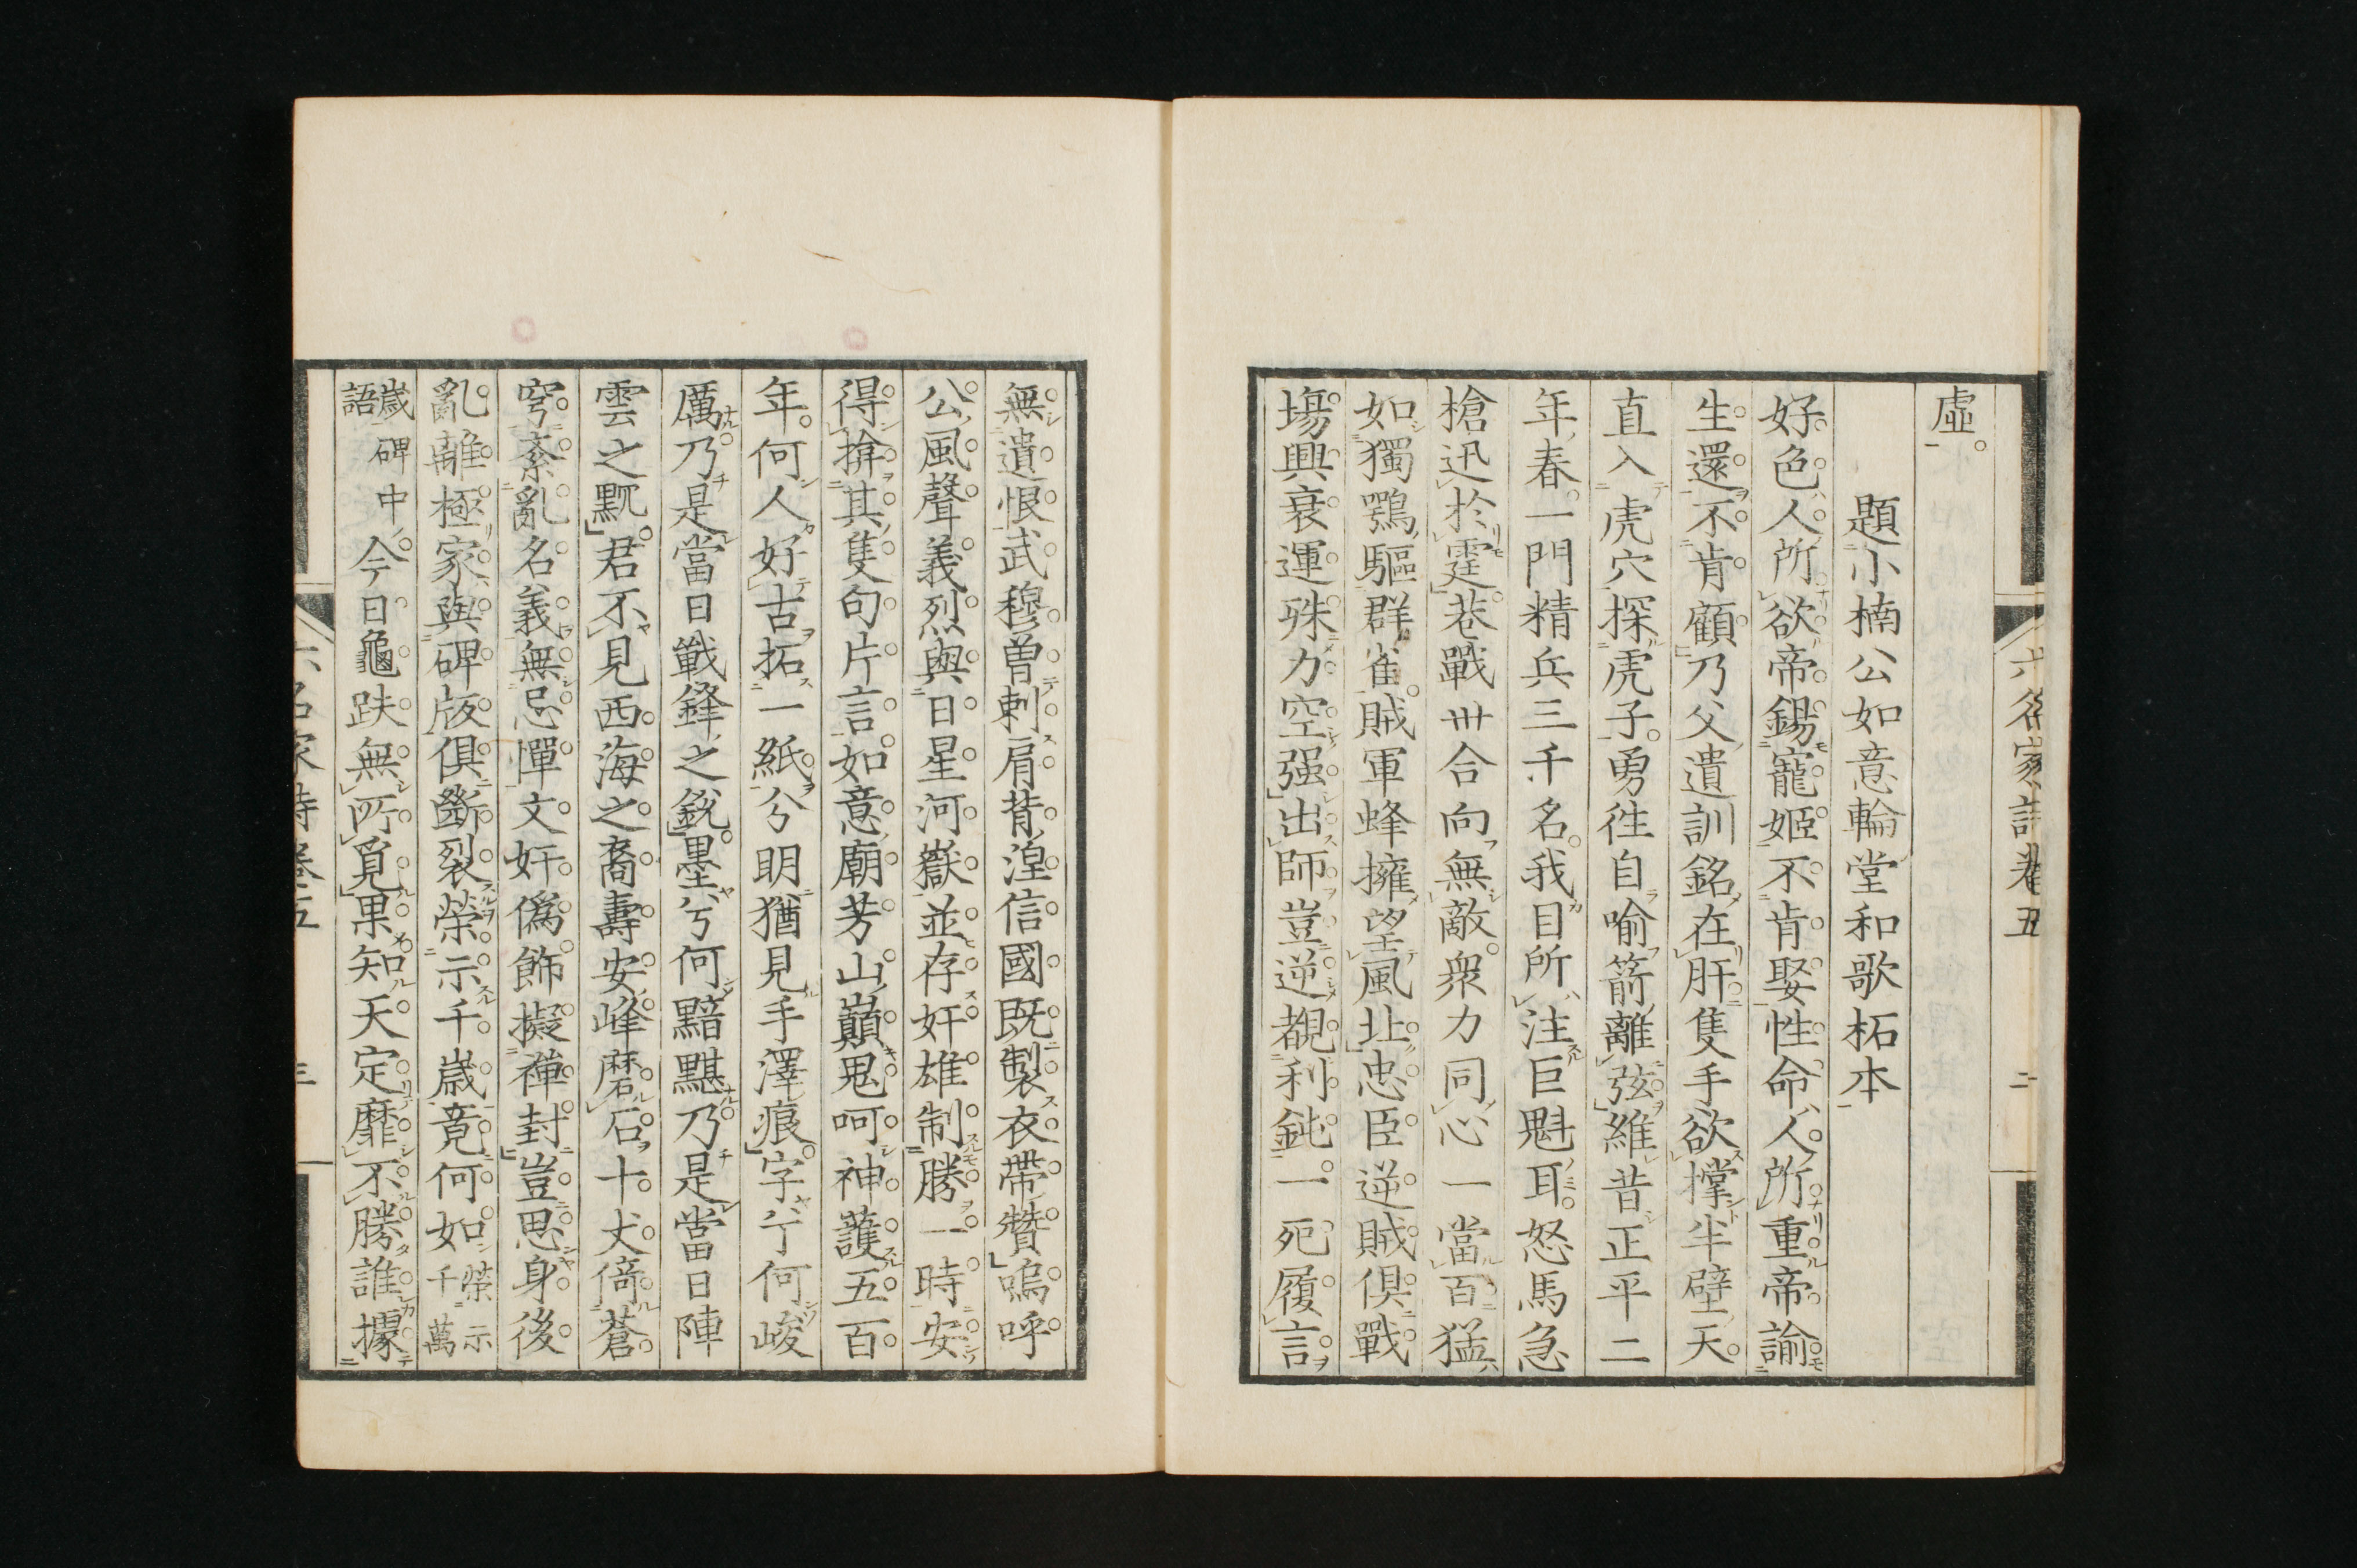 六名家詩卷五 二
虛。
題小楠公如意輪堂和歌柘本
好色人所欲帝錫寵姬不肯娶性命人所重帝諭
生還不肯顧乃父遺訓銘在肝隻手欲撑半壁天
直入虎穴探虎子勇徃自喻箭離弦維昔正平二
年春一門精兵三千名我目所注巨魁耳怒馬急
槍迅於霆巷戰卅合向無敵衆力同心一當百猛
如獨鶚驅群雀賊軍蜂擁望風北忠臣逆賊俱戰
塲興衰運殊力空强出師豈逆覩利鈍一死履言
無遺恨武穆曽刺肩背涅信國既製衣帶贊嗚呼
公風聲義烈與日星河嶽並存奸雄制勝一時安
得揜其隻句片言如意廟芳山巔鬼呵神護五百
年何人好古拓一紙分明猶見手澤痕字兮何峻
厲乃是當日戰鋒之銳墨兮何黯黮乃是當日陣
雲之黕君不見西海之裔壽安峰磨石十丈倚蒼
穹紊亂名義無忌憚文奸偽飾擬禪封豈思身後
亂離極家與碑版俱斷裂榮示千歲竟何如榮示千萬
歲碑中語今日龜趺無所覓果知天定靡不勝誰據
六名家詩卷五 三